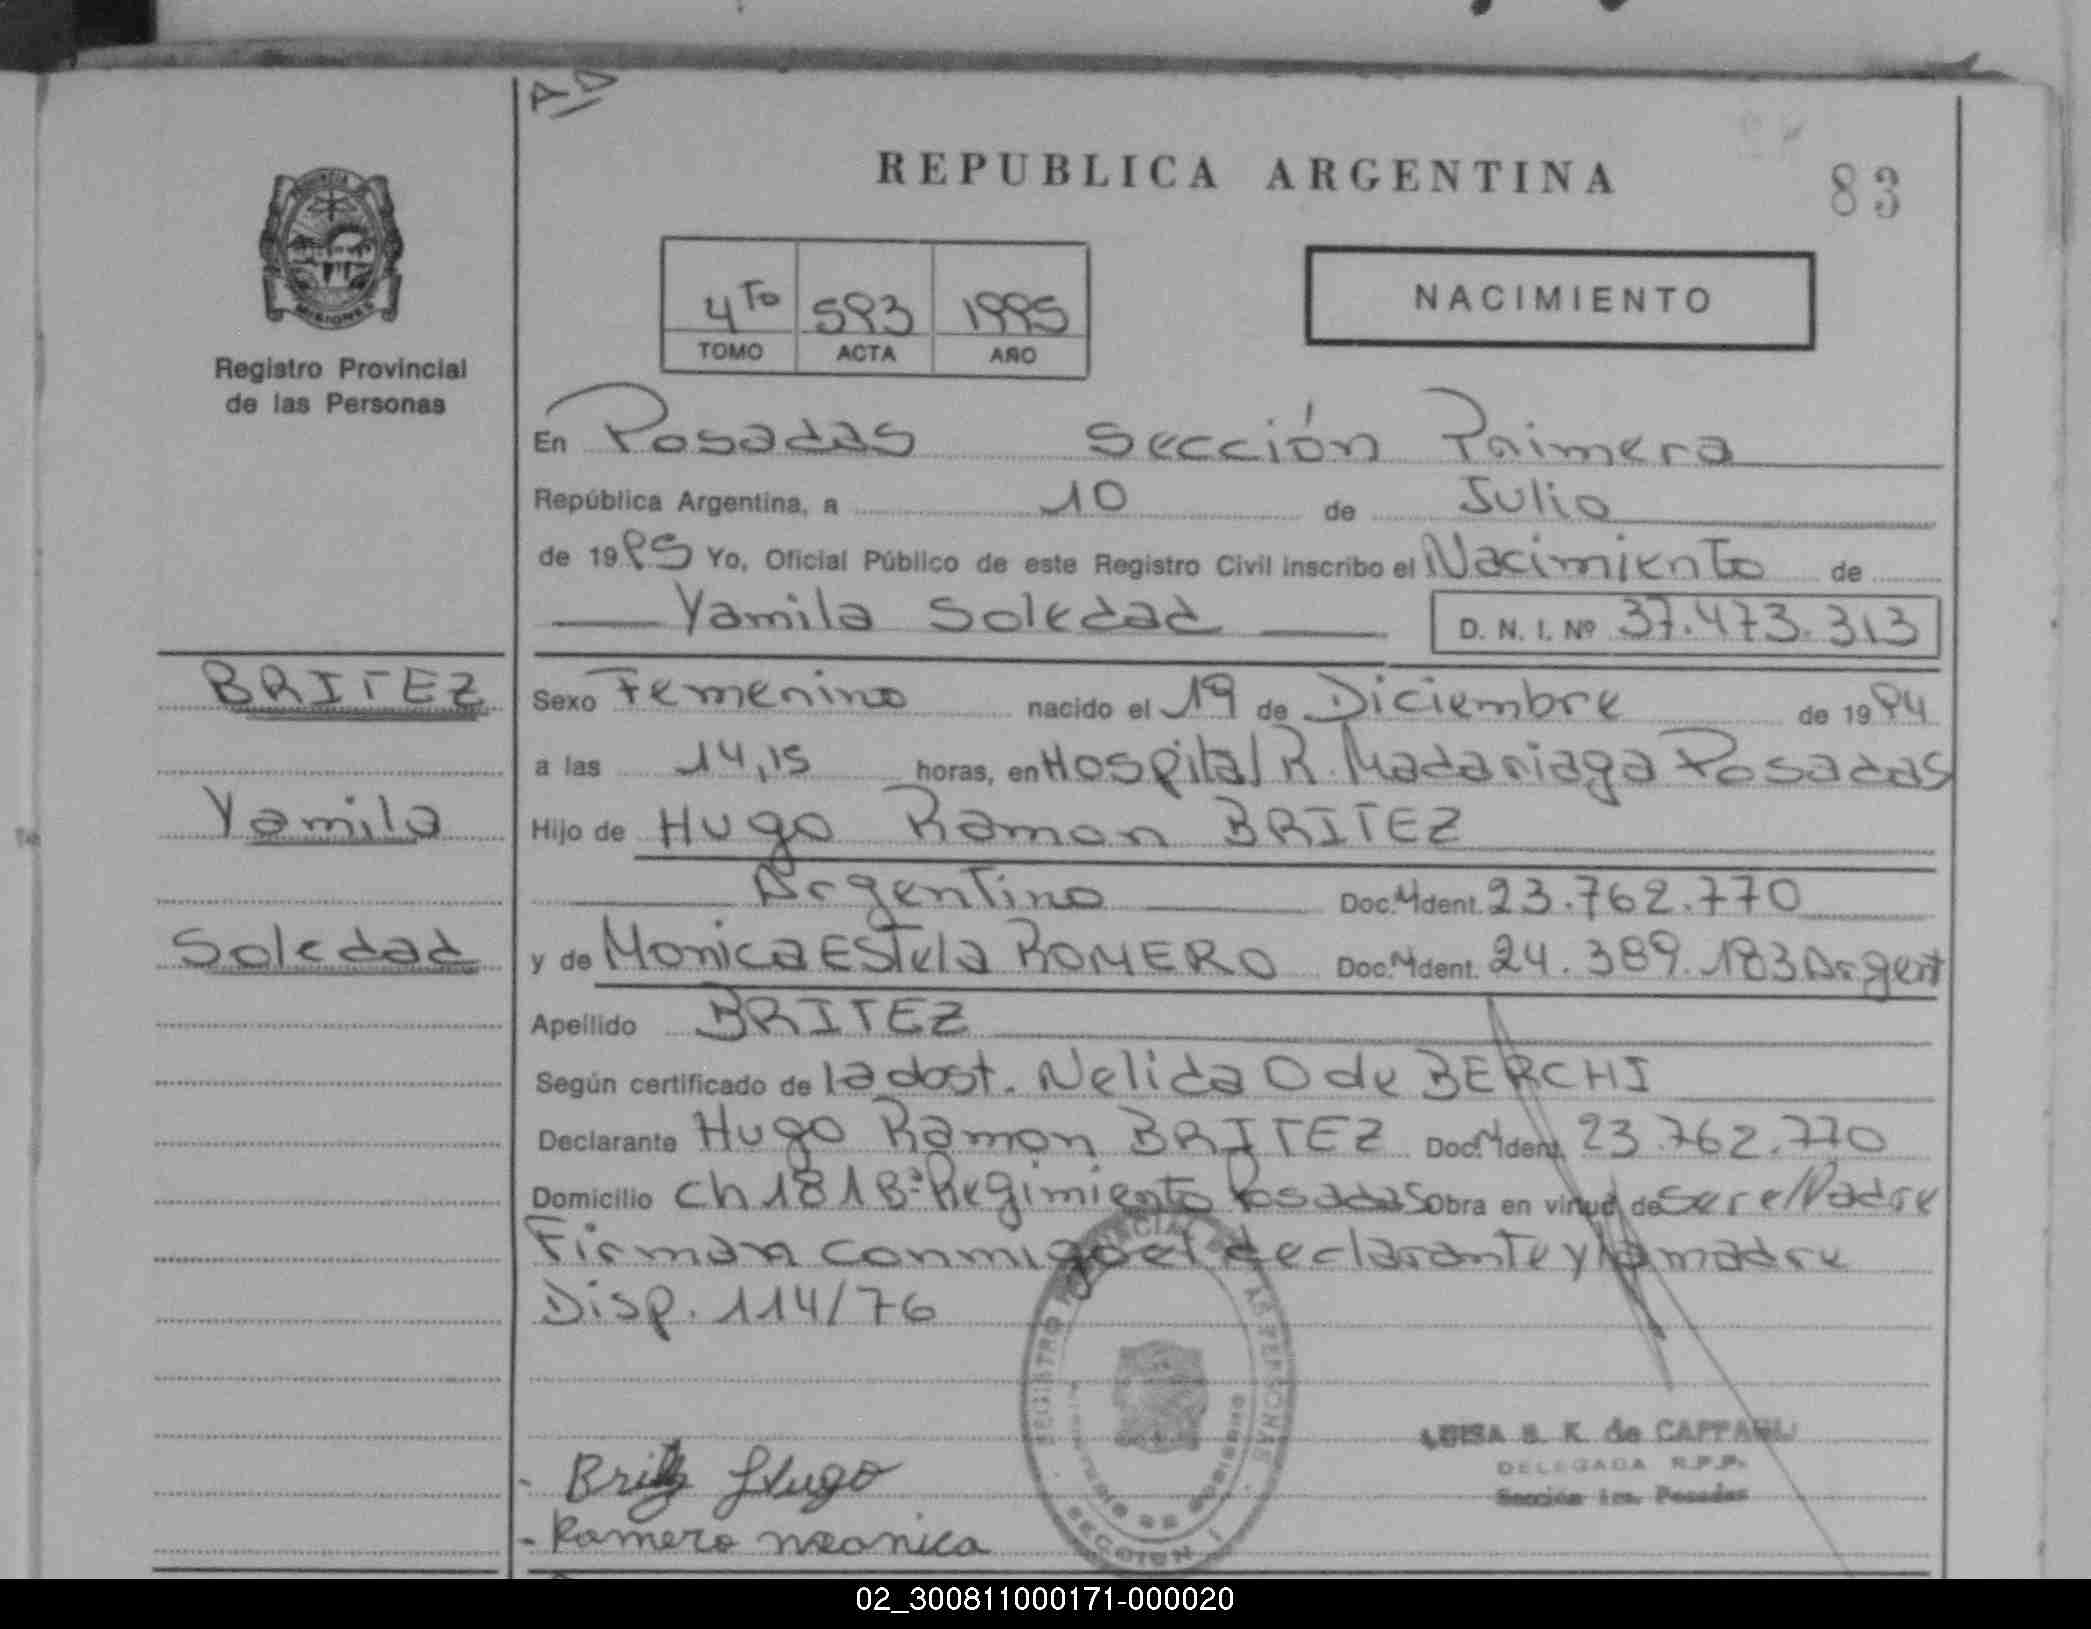 AD
REPUBLICA ARGENTINA
83
4To 593 1995
TOMO ACTA AÑO
NACIMIENTO
PROVINCIA
MISIONES
Registro Provincial
de las Personas
En Posadas Sección Primera
República Argentina, a 10 de Julio
de 1995 Yo, Oficial Público de este Registro Civil inscribo el Nacimiento de
Yamila Soledad D. N. I. Nº 37.473.313
BRITEZ
Yamila
Soledad
Sexo Femenino nacido el 19 de Diciembre de 1994
a las 14,15 horas, en Hospital R. Madariaga Posadas
Hijo de Hugo Ramon BRITEZ
Argentino Doc. Ident. 23.762.770
y de Monica Estela ROMERO Doc. Ident. 24.389.183 Argent
Apellido BRITEZ
Según certificado de la obst. Nelida O de BERCHI
Declarante Hugo Ramon BRITEZ Doc. Ident. 23.762.770
Domicilio Ch 181 Bº Regimiento Posadas Obra en virtud de ser el Padre
Firman conmigo el declarante y la madre
Disp. 114/76
REGISTRO PROVINCIAL DE LAS PERSONAS
MINISTERIO DE GOBIERNO
SECCION 1
LUISA S. K. de
DELEGADA R.P.P.
Sección 1ra. Posadas
- Britez Hugo
- Romero monica
02_300811000171-000020